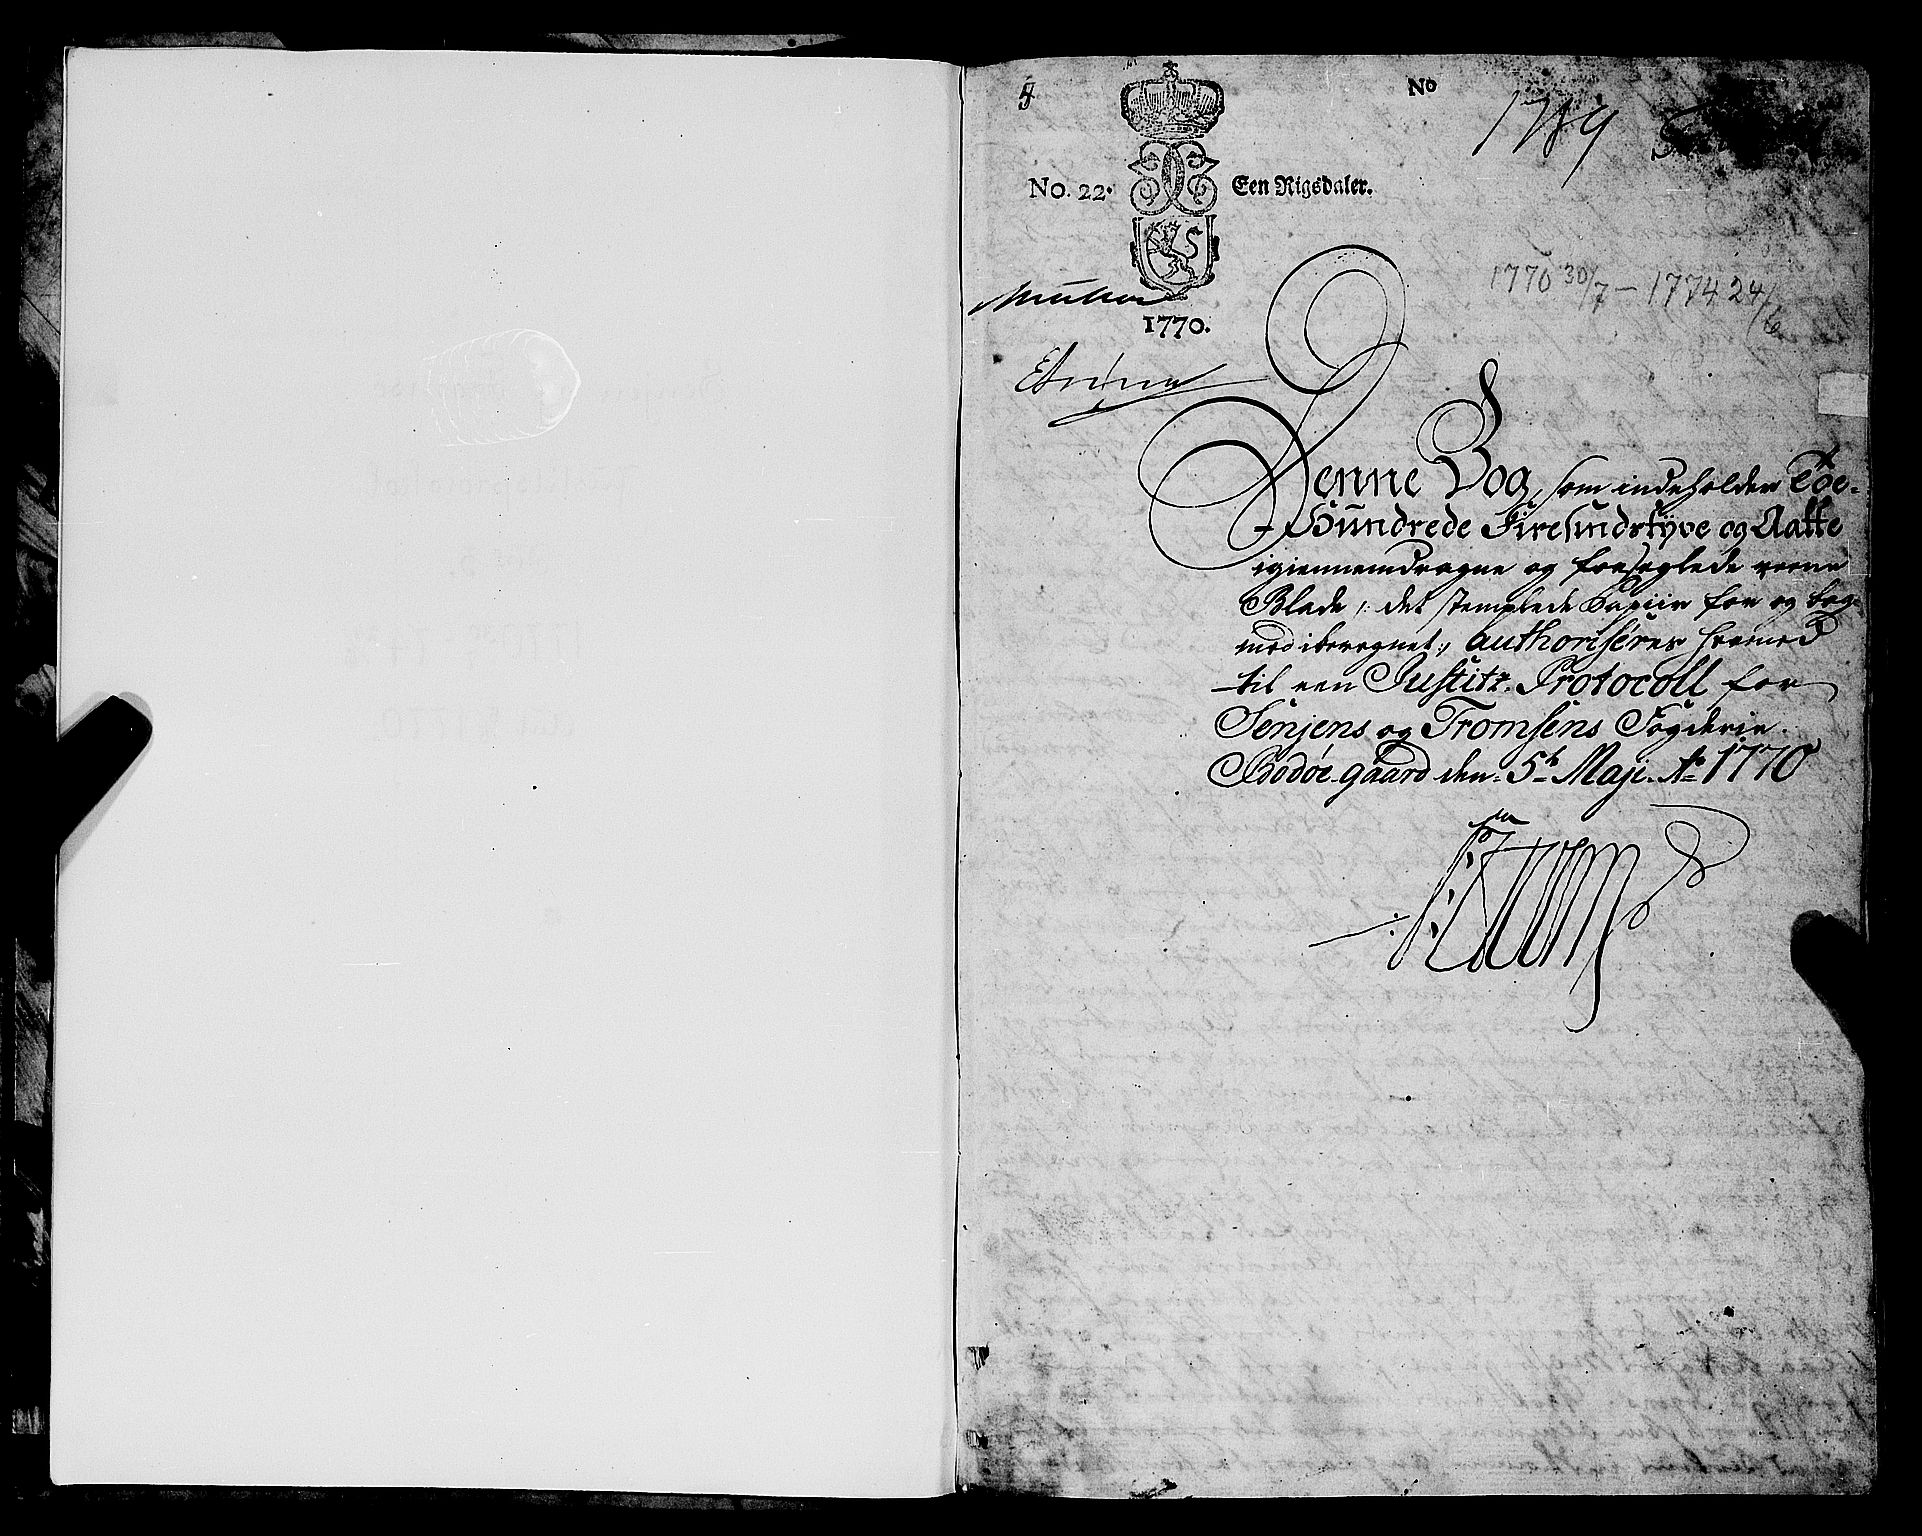 No
1789
No. 22.
Een Rigsdaler.
1770 30/7 – 1774 24/6
1770.
Denne Bog, som indeholder Toe-
Hundrede Firesindstyve og Aatte
igiennemdragne og forseglede reene
Blade /: det stemplede Papiir for og bag-
med iberegnet :/ authoriseres hermed
til een Justitz-Protocoll for
Senjens og Tromsens Fogderie.
Bodøe-gaard den 5te Maji Ao 1770